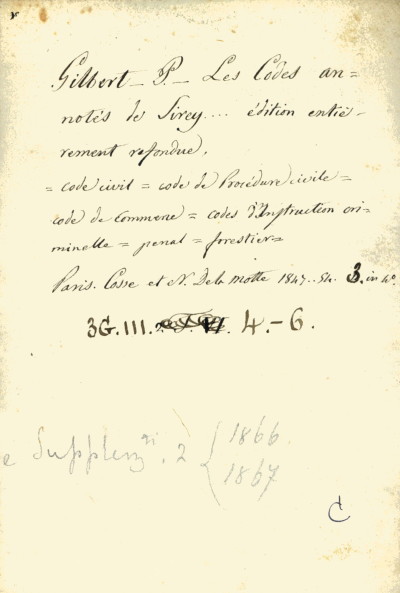 Gilbert – P. – Les Codes an-
notés de Sirey.... édition entiè-
rement refondue.
= code civil = code de Procédure civile =
code de commerce = codes d'Instruction cri-
minelle = penal = forestier =
Paris. Cosse et N. Delamotte 1847..54. 3. in 4°.
3G. III. 4.-6.
e Supplem.ti. 2 { 1866.
1867
C